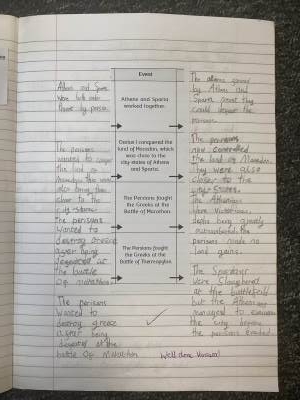 Event
Athens and Sparta
worked together.
Darius I conquered the
land of Macedon, which
was close to the
city-states of Athens
and Sparta.
The Persians fought
the Greeks at the
Battle of Marathon.
The Persians fought
the Greeks at the
Battle of Thermopylae.
Athens and Sparta
were both under
threat by persia
The persians
wanted to conquer
the land of
also bring them
closer to the
city-states
the persians
wanted to
destroy greece
after being
defeated at
the battle
Of marathon
The persians
wanted to
destroy greece
after being
defeated at the
battle Of Marathon
by Athens and
Sparta meant they
could defeat the
persians
The persians
now controlled
the land of Macedon
they were also
closer to the
city-states
The Athenians
were victorious
despite being greatly
outnumbered the
persians made no
land gains
The Spartans
were slaughtered
at the battlefield
but the Athenians
managed to evacuate
the city before
the persians
Well done